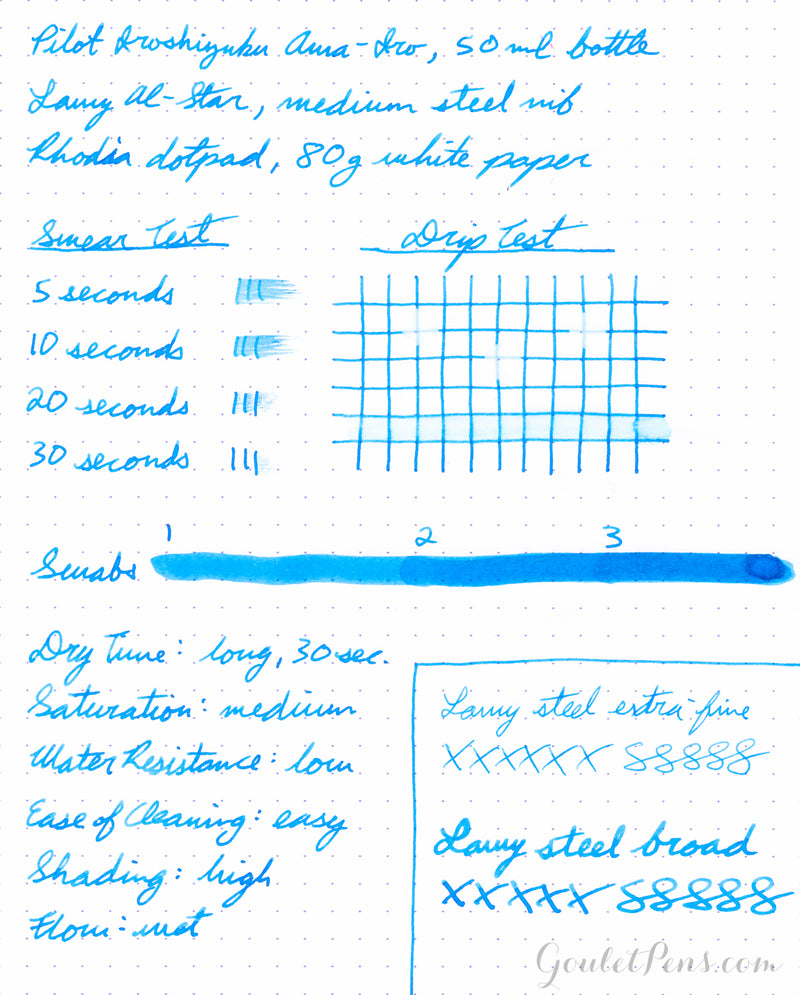 Pilot Iroshizuku Ama-Iro, 50 ml bottle
Lamy Al-Star, medium steel nib
Rhodia dotpad, 80g white paper
Smear Test
Drip Test
5 seconds
10 seconds
20 seconds
30 seconds
1 2 3
Swabs
Dry Time: long, 30 sec.
Saturation: medium
Water Resistance: low
Ease of Cleaning: easy
Shading: high
Flow: wet
Lamy steel extra-fine
xxxxxx 88888
Lamy steel broad
xxxxx 88888
GouletPens.com